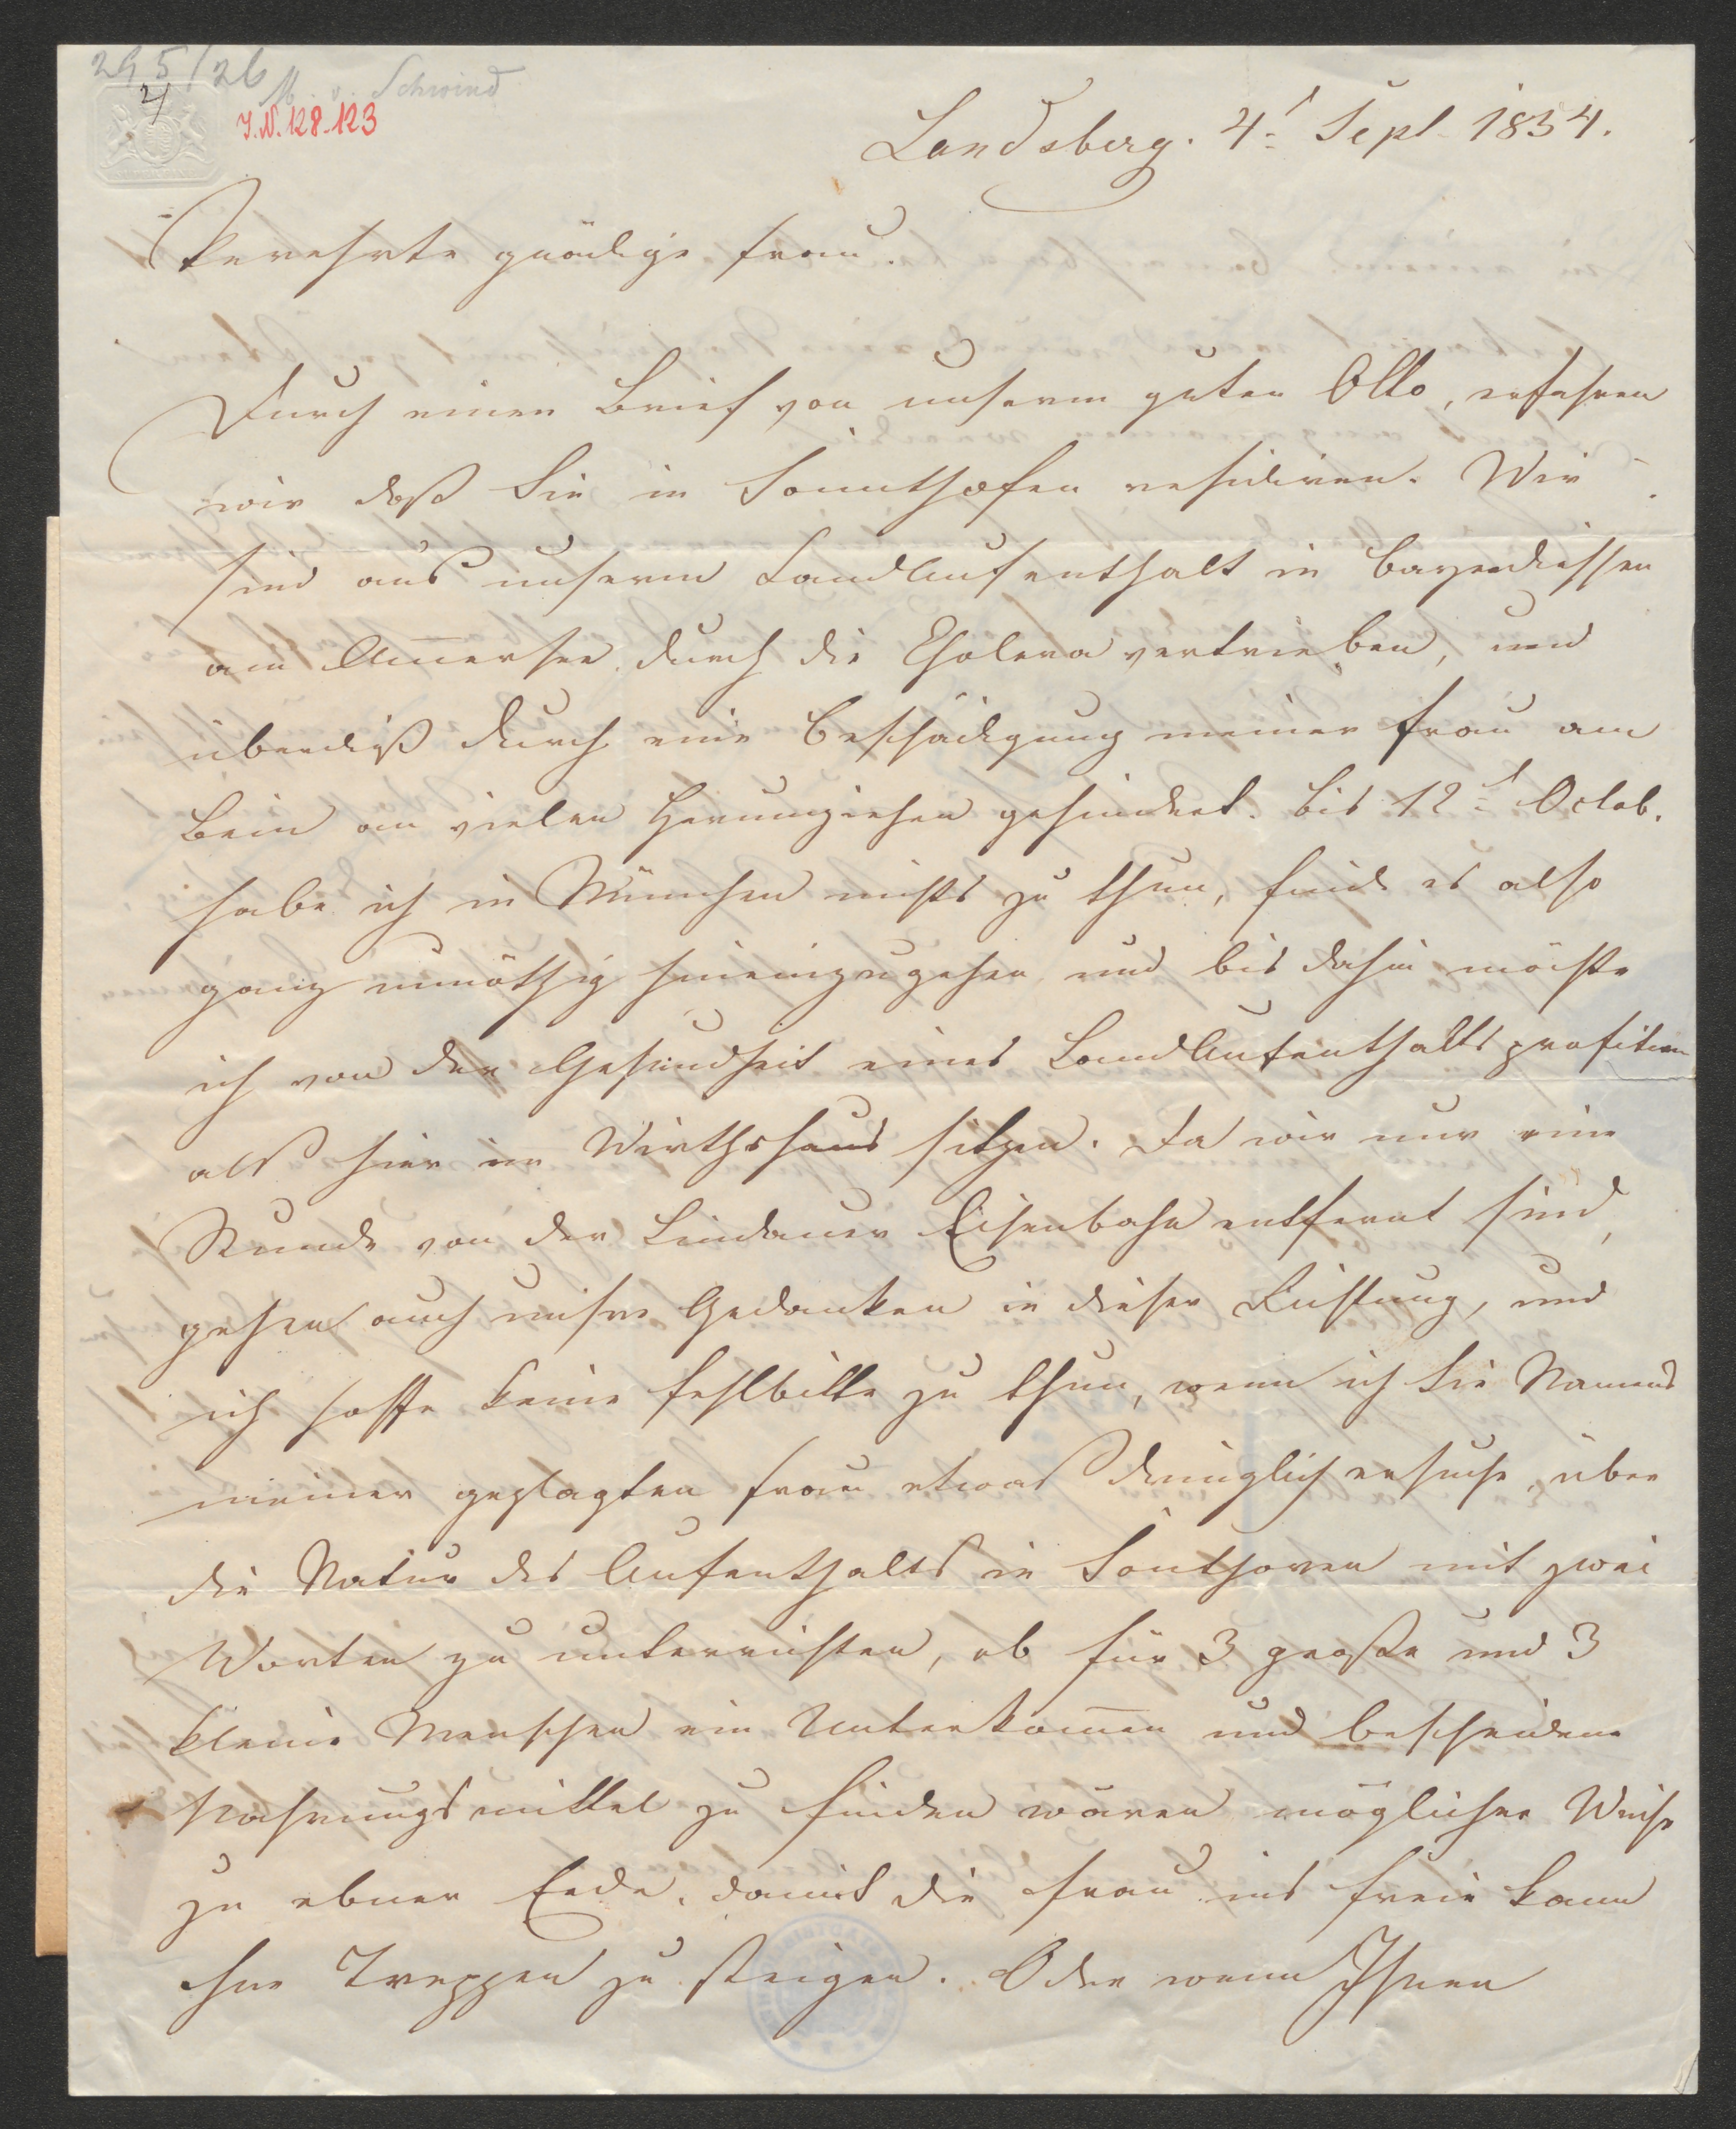 295/26
M. v. Schwind
J.N. 128.123
Landsberg. 4t Sept 1854.
Verehrte gnädige Frau.
Durch einen Brief von unserm guten Otto, erfahren
wir daß Sie in Sonnthofen residiren. Wir
sind aus unserm Landaufenthalt in Bayerdiessen
am Am̅ersee durch die Cholera vertrieben, und
überdiß durch eine Beschädigung meiner Frau am
Bein an vielen Herumziehen gehindert. Bis 12t Octob.
habe ich in München nichts zu thun, finde es also
ganz unnöthig hineinzugehen und bis dahin möchte
ich von der Gesundheit eines Landaufenthalts profitiren
als hier im Wirthshaus sitzen. Da wir nur eine
Stunde von der Lindauer Eisenbahn entfernt sind,
gehen auch unsre Gedanken in dieser Richtung, und
ich hoffe keine Fehlbitte zu thun, wenn ich Sie Namens
meiner geplagten Frau etwas dringlich ersuche, über
die Natur des Aufenthalts in Sonthoven mit zwei
Worten zu unterrichten, ob für 3 große und 3
kleine Menschen ein Unterkom̅en und bescheidene
Nahrungsmittel zu finden wären möglicher Weise
zu ebner Erde, damit die Frau ins freie kann
ohne Treppen zu steigen. Oder wenn Ihnen